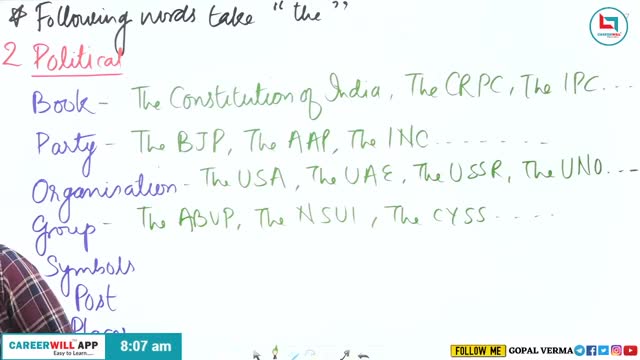 * Following words take "the"
2 Political
Book - The Constitution of India, The CRPC, The IPC...
Party - The BJP, The AAP, The INC.......
Organisation - The USA, The UAE, The USSR, The UNO...
Group - The ABVP, The NSUI, The CYSS.....
Symbols
Post
Places
CAREERWILL
CAREERWILL APP
Easy to Learn.....
8:07 am
FOLLOW ME
GOPAL VERMA